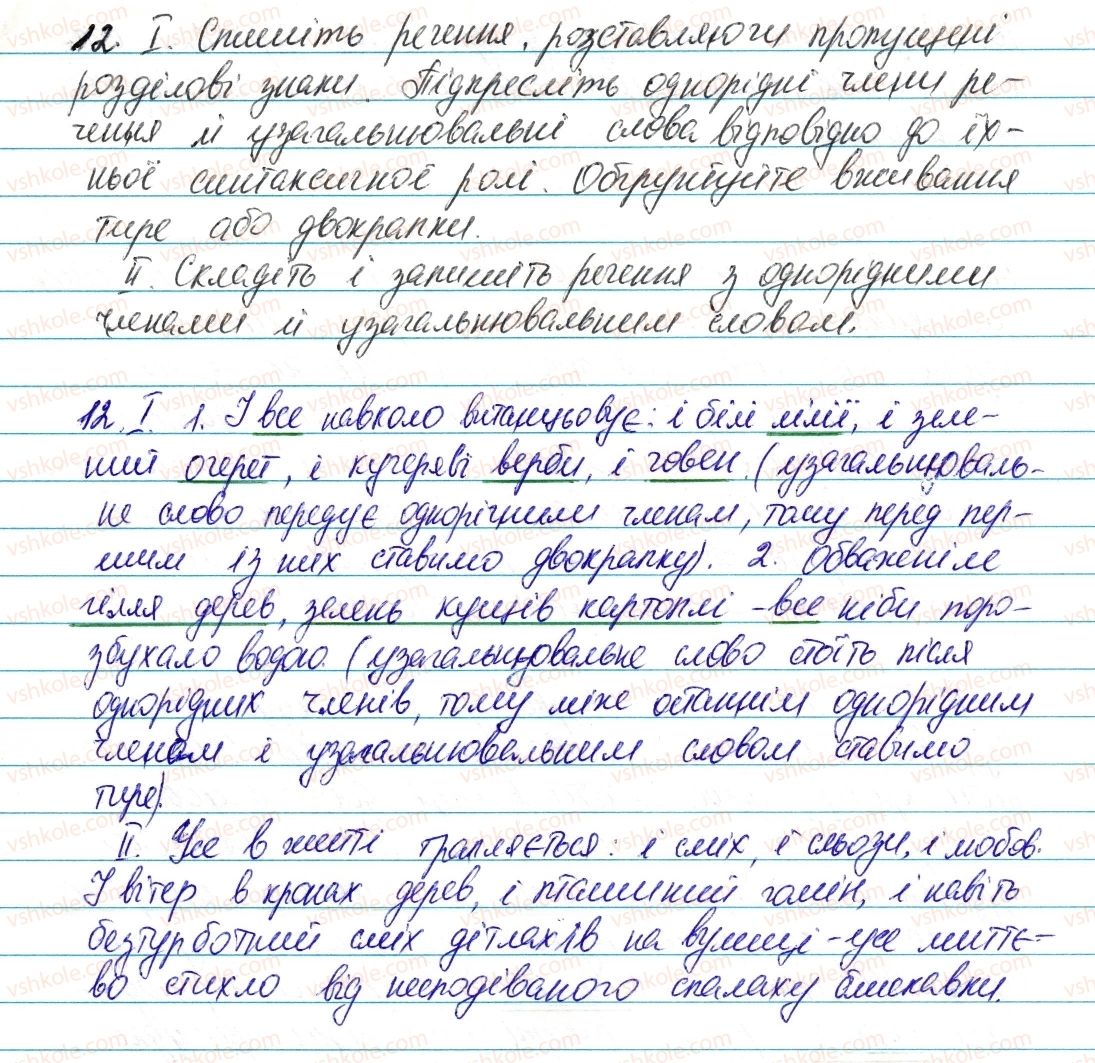 12. I. Спишіть речення, розставляючи пропущені
розділові знаки. Підкресліть однорідні члени ре-
чення й узагальнювальні слова відповідно до їх-
ньої синтаксичної ролі. Обґрунтуйте вживання
тире або двокрапки.
II. Складіть і запишіть речення з однорідними
членами й узагальнювальним словом.
12. I. 1. І все навколо витанцьовує: і білі лілії, і зеле-
ний очерет, і кучеряві верби, і човен. (узагальнюваль-
не слово передує однорідним членам, тому перед пер-
шим із них ставимо двокрапку). 2. Обважніле
гілля дерев, зелень кущів картоплі - все ніби поро-
збухало водою. (узагальнювальне слово стоїть після
однорідних членів, тому між останнім однорідним
членом і узагальнювальним словом ставимо
тире).
II. Усе в житті трапляється: і сміх, і сльози, і любов.
І вітер в кронах дерев, і пташиний гомін, і навіть
безтурботний сміх дітлахів на вулиці - усе миттє-
во стихло від несподіваного спалаху блискавки.